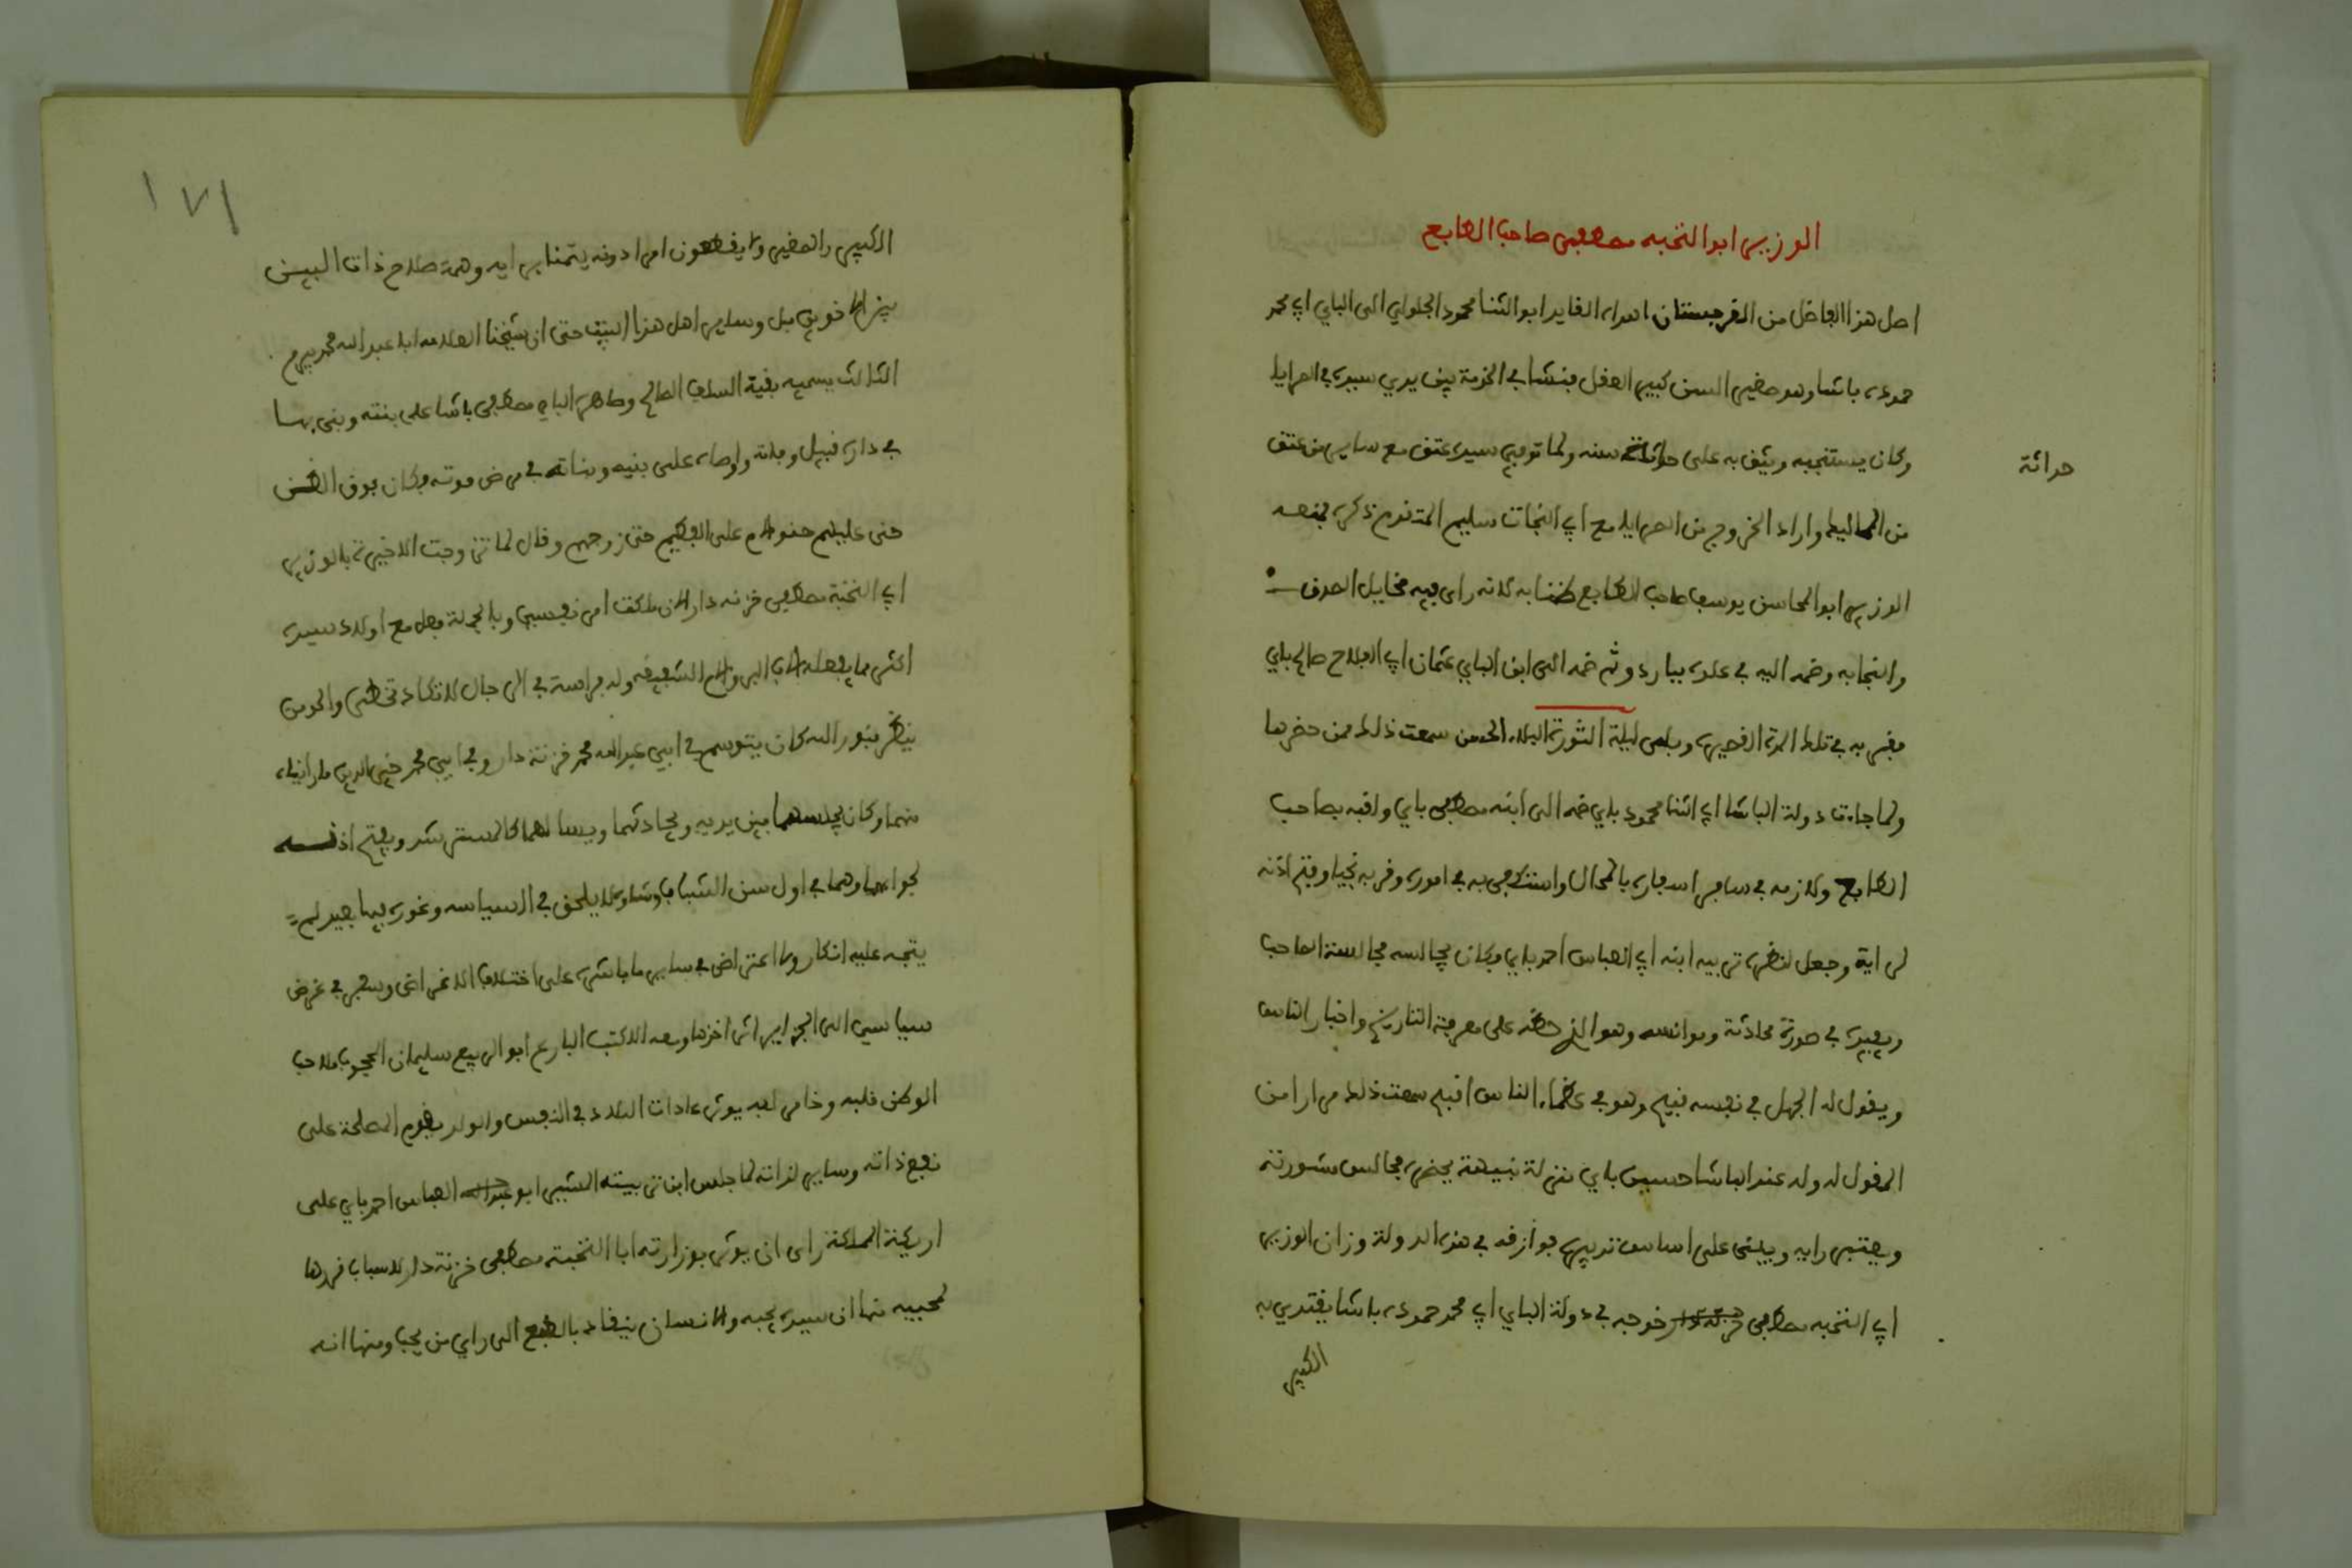 الوزير ابو النخبه مصطفى صاحب الطابع
اصل هذا الفاضل من القرجستان اهداه القايد ابو الثنا محمود الجلولي الى الباي ابي محمد
حموده باشا وهو صغير السن كبير العقل فنشا في الخدمة بين يدي سيده في السرايا
وكان يستنجبه ويثق به على حداثة سنه ولما توفي سيده عتق مع ساير من عتق
حداثة
من المماليك واراد الخروج من السرايا مع ابي النجاة سليم المتقدم ذكره فمنعه
الوزير ابو المحاسن يوسف صاحب الطابع ظنا به لانه راى فيه مخايل الصدق
والنجابه وضمه اليه في علوه بباردو ثم ضمه الى ابن الباي عثمان ابي الفلاح صالح باي
فبقى به في تلك المدة القصيره وبلى ليلة الثورة البلاء الحسن سمعت ذلك ممن حضرها
ولما جاءت دولة الباشا ابي الثنا محمود باي ضمه الى ابنه مصطفى باي ولقبه بصاحب
الطابع ولازمه في ساير اسفاره بالمحال واستكفى به في اموره وقربه نجيا وفتح اذنه
لرايه وجعل لنظره تربيه ابنه ابي العباس احمد باي وكان يجالسه مجالسة الصاحب
ويفيده في صورة محادثة وموانسه وهو الذي حضه على معرفة التاريخ واخبار الناس
ويقول له الجهل في نفسه قبيح وهو في عظماء الناس اقبح سمعت ذلك مرارا من
المقول له وله عند الباشا حسين باي منزلة نبيهة يحضره مجالس مشورته
ويعتبر رايه ويبني على اساس تدبيره فوازره في هذه الدولة وزان الوزير
ابي النخبه مصطفى خوجه في دولة الباي ابي محمد حموده باشا يقتدي به
الكبير
١٧١
الكبير والصغير ولا يقطعون امرا دونه يتمنا برايه وهمة صلاح ذات البين
بين الاخوين بل وساير اهل هذا البيت حتى ان شيخنا العلامه ابا عبد الله محمد بيرم
الثالث يسميه بقية السلف الصالح وصاهره الباي مصطفى باشا على بنته وبنى بها
في داره قبيل وفاته واوصاه على بنيه وبناته في مرض موته فكان فوق الظن
حنى عليهم حنو الام على الفطيم حتى زوجهم وقال لما تزوجت الاخيرة بالوزير
ابي النخبة مصطفى خزنه دار الان ملكت امر نفسي وبالجملة فعل مع اولاد سيده
اكثر مما يفعله الاب البر والاخ الشقيق وله فراسة في الرجال لا تكاد تخطي والمومن
ينظر بنور الله كان يتوسم في ابي عبد الله محمد خزنة دار وفي ابي محمد خير الدين ما رايناه
منهما وكان يجلسهما بين يديه ويحادثهما ويسالهما كالمسترشد ويفتح اذنه
لجوابهما وهما في اول سن الشباب وشاوه لا يلحق في السياسه وغوره فيها بعيد لم
يتجه عليه انكار ولا اعتراض في ساير ما باشره على اختلاف الاغراض وسفر في غرض
سياسي الى الجزاير اثر اخذها ومعه الاكتب البارع ابو الربيع سليمان المحجوب ملاحب
الوطن قلبه وخامر لبه يوثر عادات البلاد في النفس والولد يقدم المصلحة على
نفع ذاته وساير لذاته لما جلس ابن تربيته المشير ابو العباس احمد باي على
اريكة المملكة راى ان يوثر بوزارته ابا النخبة مصطفى خزنة دار لاسباب قررها
لمحبيه منها ان سيده يحبه والانسان ينقاد بالطبع الى راي من يحب ومنها انه